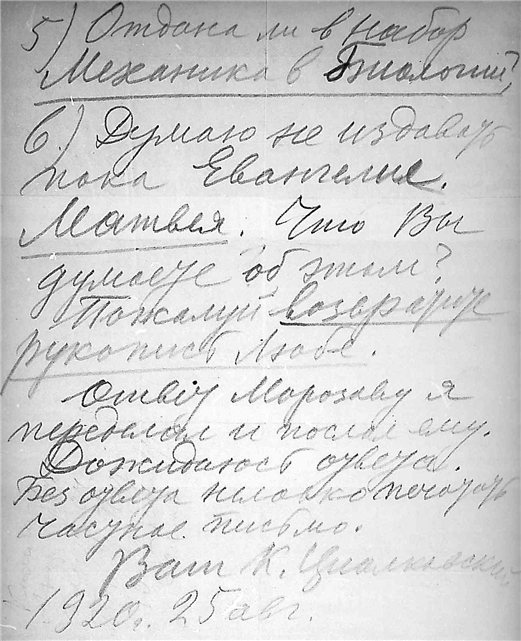 5) Отдана ли в набор
Механика в Биологии?
6.) Думаю не издавать
пока Евангелие.
Матвея. Что Вы
думаете об этом?
Пожалуй возвратите
рукопись Любе.
Отвѣт Морозову я
переделал и послал ему.
Дожидаюсь ответа.
Без ответа неловко печатать
частное письмо.
Ваш К. Циалковский
1920г. 25 авг.